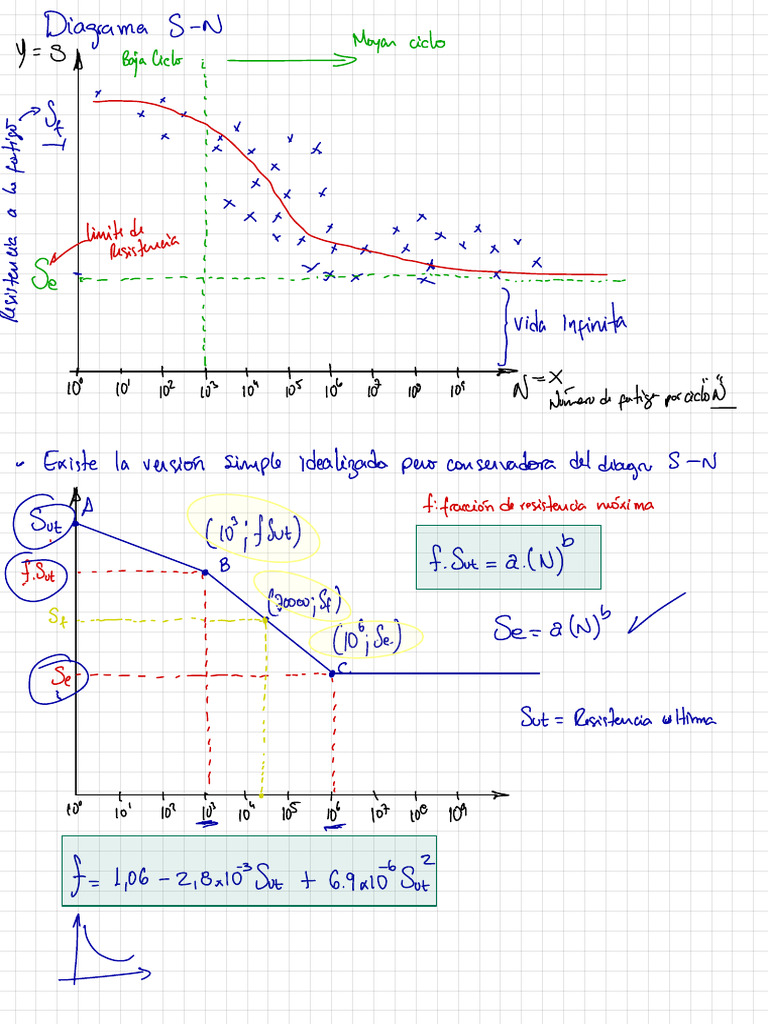 Diagrama S-N
y = S
Baja Ciclo
Moyar ciclo
Resistencia a la fatiga
Sf
Limite de
Resistencia
Se
vida Infinita
10⁰ 10¹ 10² 10³ 10⁴ 10⁵ 10⁶ 10⁷ 10⁸ 10⁹
N = x
Número de fatiga por ciclo "N"
Existe la versión simple idealizada pero conservadora del diagr S-N
Sut
A
(10³; f Sut)
f: fracción de resistencia máxima
f.Sut
B
f.Sut = a.(N)^b
Sf
(20000; Sf)
(10⁶; Se)
Se = a(N)^b
Se
C
Sut = Resistencia ultima
10⁰ 10¹ 10² 10³ 10⁴ 10⁵ 10⁶ 10⁷ 10⁸ 10⁹
f = 1,06 - 2,8x10⁻³ Sut + 6.9x10⁻⁶ Sut²